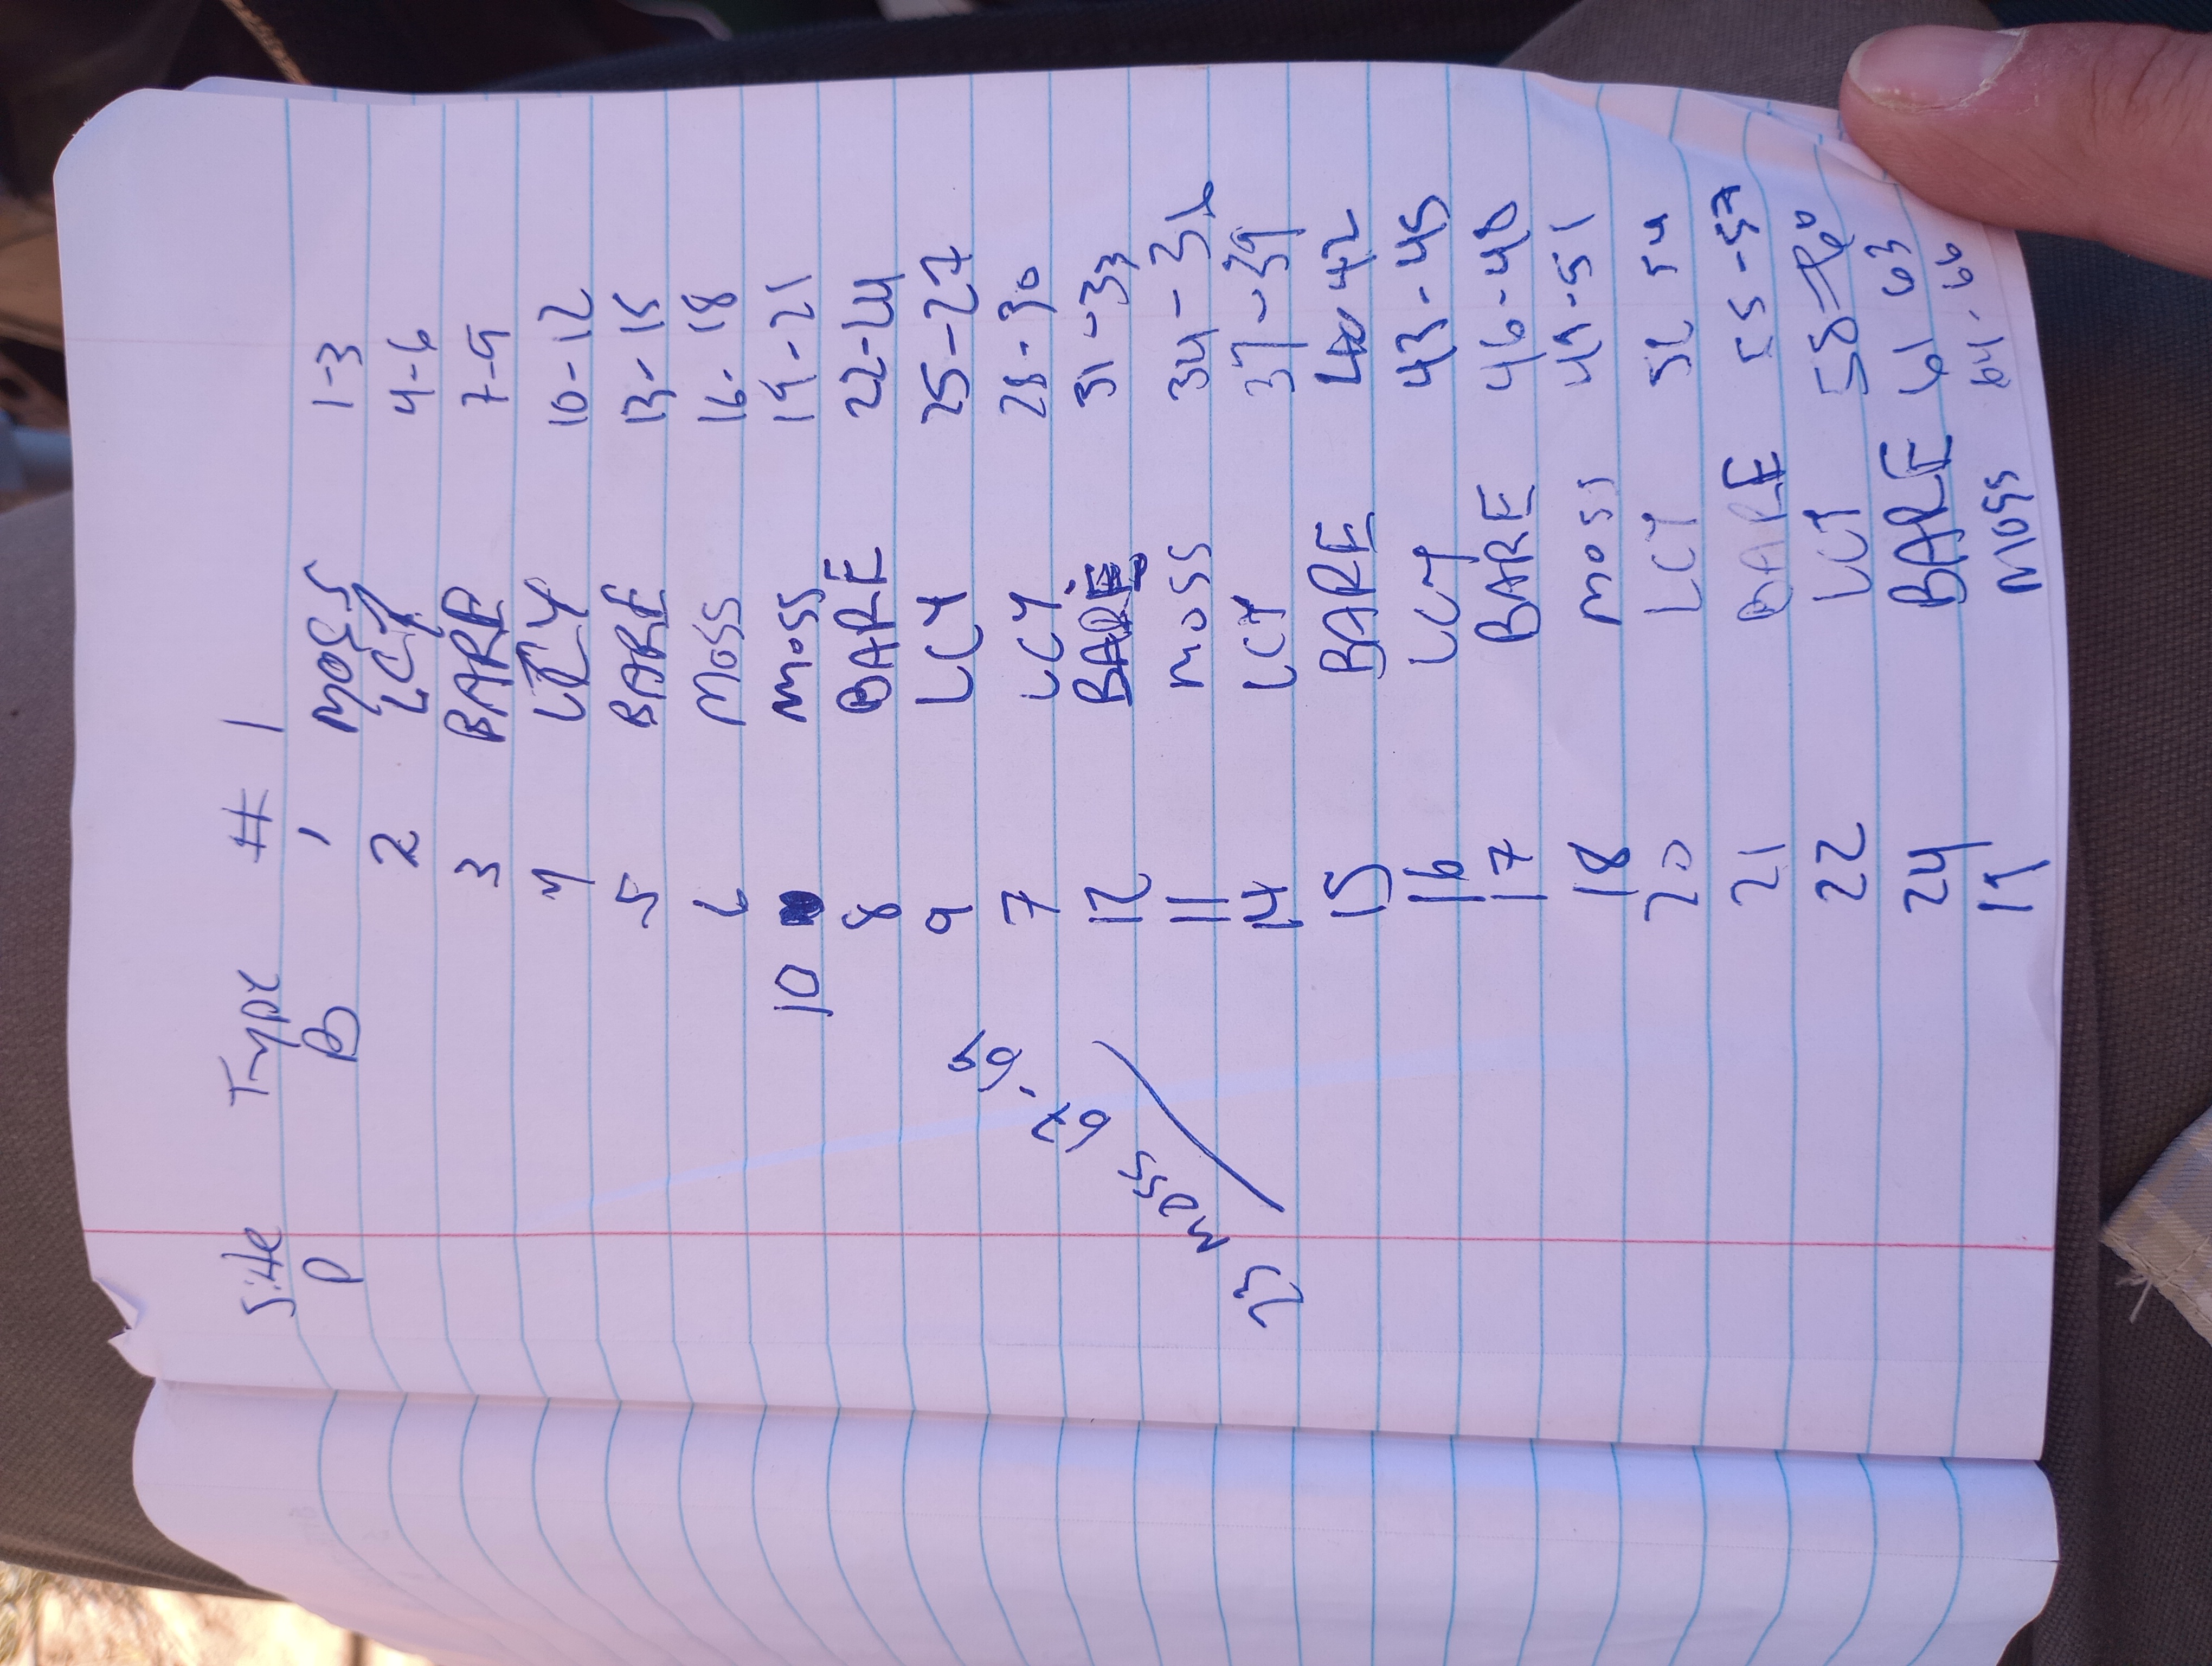 Site Type # 1
P B 1 MOSS 1-3
2 LCY 4-6
3 BARE 7-9
4 LCY 10-12
5 BARE 13-15
6 MOSS 16-18
10 MOSS 19-21
8 BARE 22-24
9 LCY 25-27
7 LCY 28-30
12 BARE 31-33
11 MOSS 34-36
14 LCY 37-39
15 BARE 40 42
16 LCY 43-45
17 BARE 46-48
18 MOSS 49-51
20 LCY 52 54
21 BARE 55-57
22 LCY 58-60
24 BARE 61 63
19 MOSS 64-66
23 MOSS 67-69